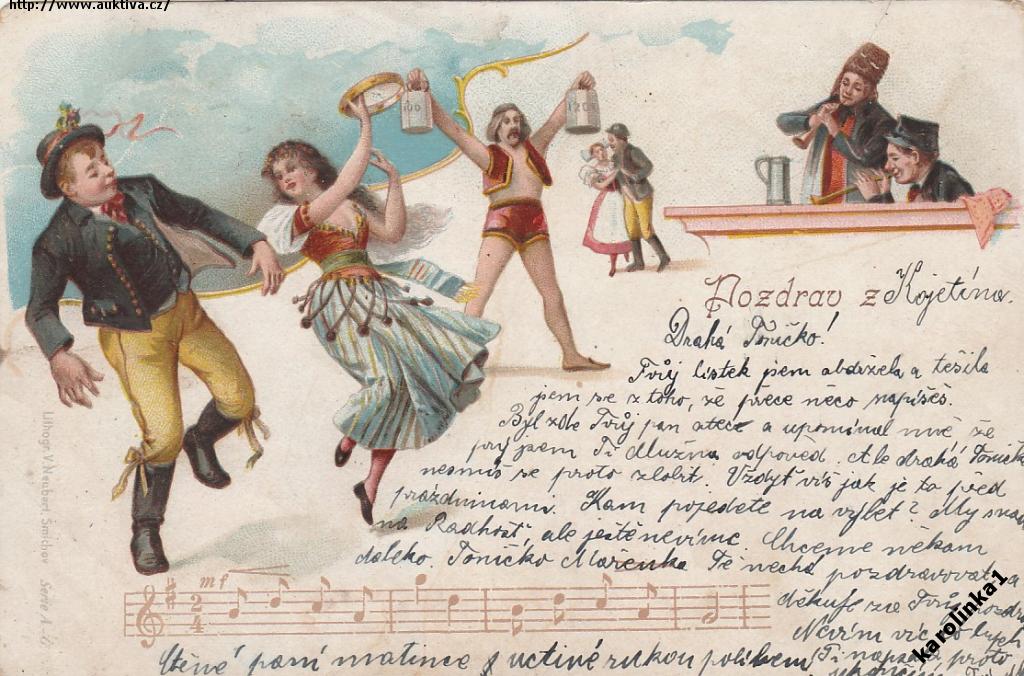 http://www.auktiva.cz/
100
120
Pozdrav z Kojetína.
Drahá Toničko!
Tvůj lístek jsem obdržela a těšila
jsem se z toho, že přece něco napíšeš.
Byl zde Tvůj pan otec a upomínal mne že
prý jsem Ti dlužna odpověď. Ale drahá Toničko
nesmíš se proto zlobit. Vždyť víš jak je to před
prázdninami. Kam pojedete na výlet? My snad
na Radhošť, ale ještě nevíme. Chceme někam
daleko. Toničko Mařenka Tě nechá pozdravovat a
děkuje za Tvůj pozdrav
Nevím víc co bych
Ti napsala proto
mf
2
4
Ctěné paní matince uctivě rukou políbení
Lithogr. V. Neubert Smichov Serie A.
karolinka1